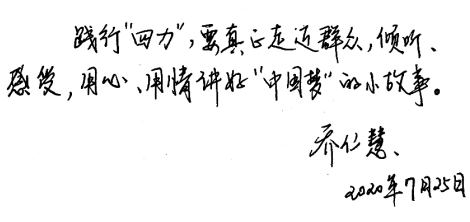 践行"四力"，要真正走近群众，倾听、
感受，用心、用情讲好"中国梦"的小故事。
乔仁慧、
2020年7月25日